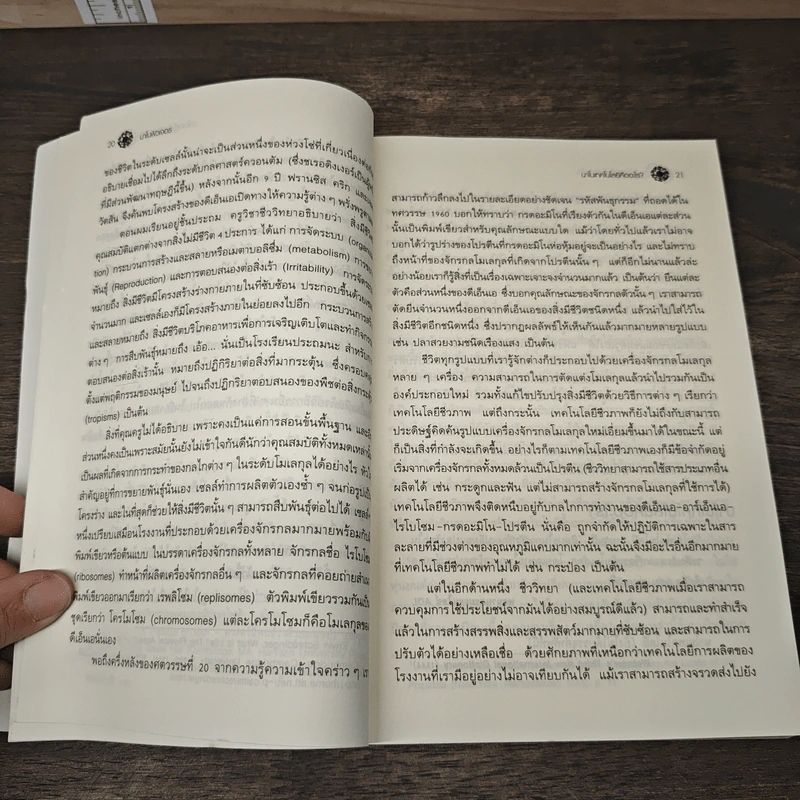 20 นาโนฟิวเจอร์
ของชีวิตในระดับเซลล์นั้นน่าจะเป็นส่วนหนึ่งของห่วงโซ่ที่เกี่ยวเนื่อง
อธิบายเชื่อมไปได้ลึกถึงระดับกลศาสตร์ควอนตัม (ซึ่งชเรอดิงเงอร์เป็นผู้
ที่ร่วมพัฒนาทฤษฎีนี้ขึ้น) หลังจากนั้นอีก 9 ปี ฟรานซิส คริก และ
วัตสัน จึงค้นพบโครงสร้างของดีเอ็นเอเปิดทางให้ความรู้ต่าง ๆ พรั่งพรู
ตอนผมเรียนอยู่ชั้นประถม ครูวิชาชีววิทยาอธิบายว่า สิ่งมี
คุณสมบัติแตกต่างจากสิ่งไม่มีชีวิต 4 ประการ ได้แก่ การจัดระบบ
tion) กระบวนการสร้างและสลายหรือเมตาบอลิซึ่ม (metabolism) การ
พันธุ์ (Reproduction) และการตอบสนองต่อสิ่งเร้า (Irritability) การจัด
หมายถึง สิ่งมีชีวิตมีโครงสร้างร่างกายภายในที่ซับซ้อน ประกอบขึ้นด้วย
จำนวนมาก และเซลล์เองก็มีโครงสร้างภายในย่อยลงไปอีก กระบวนการ
และสลายหมายถึง สิ่งมีชีวิตบริโภคอาหารเพื่อการเจริญเติบโตและทำ
ต่าง ๆ การสืบพันธุ์หมายถึง เอ้อ... นั่นเป็นโรงเรียนประถมนะ สำหรับ
ตอบสนองต่อสิ่งเร้านั้น หมายถึงปฏิกิริยาต่อสิ่งที่มากระตุ้น ซึ่งครอบ
ตั้งแต่พฤติกรรมของมนุษย์ ไปจนถึงปฏิกิริยาตอบสนองของพืชต่อสิ่ง
(tropisms) เป็นต้น
สิ่งที่คุณครูไม่ได้อธิบาย เพราะคงเป็นแค่การสอนขั้นพื้นฐาน และ
ส่วนหนึ่งคงเป็นเพราะสมัยนั้นยังไม่เข้าใจกันดีนักว่าคุณสมบัติทั้งหมด
เป็นผลที่เกิดจากการกระทำของกลไกต่าง ๆ ในระดับโมเลกุลได้อย่างไร
สำคัญอยู่ที่การขยายพันธุ์นั่นเอง เซลล์ทำการผลิตตัวเองซ้ำ ๆ จนก่อรูป
โครงร่าง และในที่สุดก็ช่วยให้สิ่งมีชีวิตนั้น ๆ สามารถสืบพันธุ์ต่อไปได้
หนึ่งเปรียบเสมือนโรงงานที่ประกอบด้วยเครื่องจักรกลมากมายพร้อม
พิมพ์เขียวหรือต้นแบบ ในบรรดาเครื่องจักรกลทั้งหลาย จักรกลชื่อ ไรโบ
(ribosomes) ทำหน้าที่ผลิตเครื่องจักรกลอื่น ๆ และจักรกลที่คอยถ่าย
พิมพ์เขียวออกมาเรียกว่า เรพลิโซม (replisomes) ตัวพิมพ์เขียวรวมกัน
ชุดเรียกว่า โครโมโซม (chromosomes) แต่ละโครโมโซมก็คือโมเลกุล
ดีเอ็นเอนั่นเอง
พอถึงครึ่งหลังของศตวรรษที่ 20 จากความรู้ความเข้าใจคร่าว ๆ
นาโนเทคโนโลยีคืออะไร? 21
สามารถก้าวลึกลงไปในรายละเอียดอย่างชัดเจน "รหัสพันธุกรรม" ที่ถอดได้ใน
ทศวรรษ 1960 บอกให้ทราบว่า กรดอะมิโนที่เรียงตัวกันในดีเอ็นเอแต่ละส่วน
นั้นเป็นพิมพ์เขียวสำหรับคุณลักษณะแบบใด แม้ว่าโดยทั่วไปแล้วเราไม่อาจ
บอกได้ว่ารูปร่างของโปรตีนที่กรดอะมิโนห่อหุ้มอยู่จะเป็นอย่างไร และไม่ทราบ
ถึงหน้าที่ของจักรกลโมเลกุลที่เกิดจากโปรตีนนั้น ๆ แต่ก็อีกไม่นานแล้วล่ะ
อย่างน้อยเราก็รู้สิ่งที่เป็นเรื่องเฉพาะเจาะจงจำนวนมากแล้ว เป็นต้นว่า ยีนแต่ละ
ตัวคือส่วนหนึ่งของดีเอ็นเอ ซึ่งบอกคุณลักษณะของจักรกลตัวนั้น ๆ เราสามารถ
ตัดยีนจำนวนหนึ่งออกจากดีเอ็นเอของสิ่งมีชีวิตชนิดหนึ่ง แล้วนำไปใส่ไว้ใน
สิ่งมีชีวิตอีกชนิดหนึ่ง ซึ่งปรากฏผลลัพธ์ให้เห็นกันแล้วมากมายหลายรูปแบบ
เช่น ปลาสวยงามชนิดเรืองแสง เป็นต้น
ชีวิตทุกรูปแบบที่เรารู้จักต่างก็ประกอบไปด้วยเครื่องจักรกลโมเลกุล
หลาย ๆ เครื่อง ความสามารถในการตัดแต่งโมเลกุลแล้วนำไปรวมกันเป็น
องค์ประกอบใหม่ รวมทั้งแก้ไขปรับปรุงสิ่งมีชีวิตด้วยวิธีการต่าง ๆ เรียกว่า
เทคโนโลยีชีวภาพ แต่ถึงกระนั้น เทคโนโลยีชีวภาพก็ยังไม่ถึงกับสามารถ
ประดิษฐ์คิดค้นรูปแบบเครื่องจักรกลโมเลกุลใหม่เอี่ยมขึ้นมาได้ในขณะนี้ แต่
ก็เป็นสิ่งที่กำลังจะเกิดขึ้น อย่างไรก็ตามเทคโนโลยีชีวภาพเองก็มีข้อจำกัดอยู่
เริ่มจากเครื่องจักรกลทั้งหมดล้วนเป็นโปรตีน (ชีววิทยาสามารถใช้สารประเภทอื่น
ผลิตได้ เช่น กระดูกและฟัน แต่ไม่สามารถสร้างจักรกลโมเลกุลที่ใช้การได้)
เทคโนโลยีชีวภาพจึงติดหนึบอยู่กับกลไกการทำงานของดีเอ็นเอ-อาร์เอ็นเอ-
ไรโบโซม-กรดอะมิโน-โปรตีน นั่นคือ ถูกจำกัดให้ปฏิบัติการเฉพาะในสาร
ละลายที่มีช่วงต่างของอุณหภูมิแคบมากเท่านั้น ฉะนั้นจึงมีอะไรอื่นอีกมากมาย
ที่เทคโนโลยีชีวภาพทำไม่ได้ เช่น กระป๋อง เป็นต้น
แต่ในอีกด้านหนึ่ง ชีววิทยา (และเทคโนโลยีชีวภาพเมื่อเราสามารถ
ควบคุมการใช้ประโยชน์จากมันได้อย่างสมบูรณ์ดีแล้ว) สามารถและทำสำเร็จ
แล้วในการสร้างสรรพสิ่งและสรรพสัตว์มากมายที่ซับซ้อน และสามารถในการ
ปรับตัวได้อย่างเหลือเชื่อ ด้วยศักยภาพที่เหนือกว่าเทคโนโลยีการผลิตของ
โรงงานที่เรามีอยู่อย่างไม่อาจเทียบกันได้ แม้เราสามารถสร้างจรวดส่งไปยัง